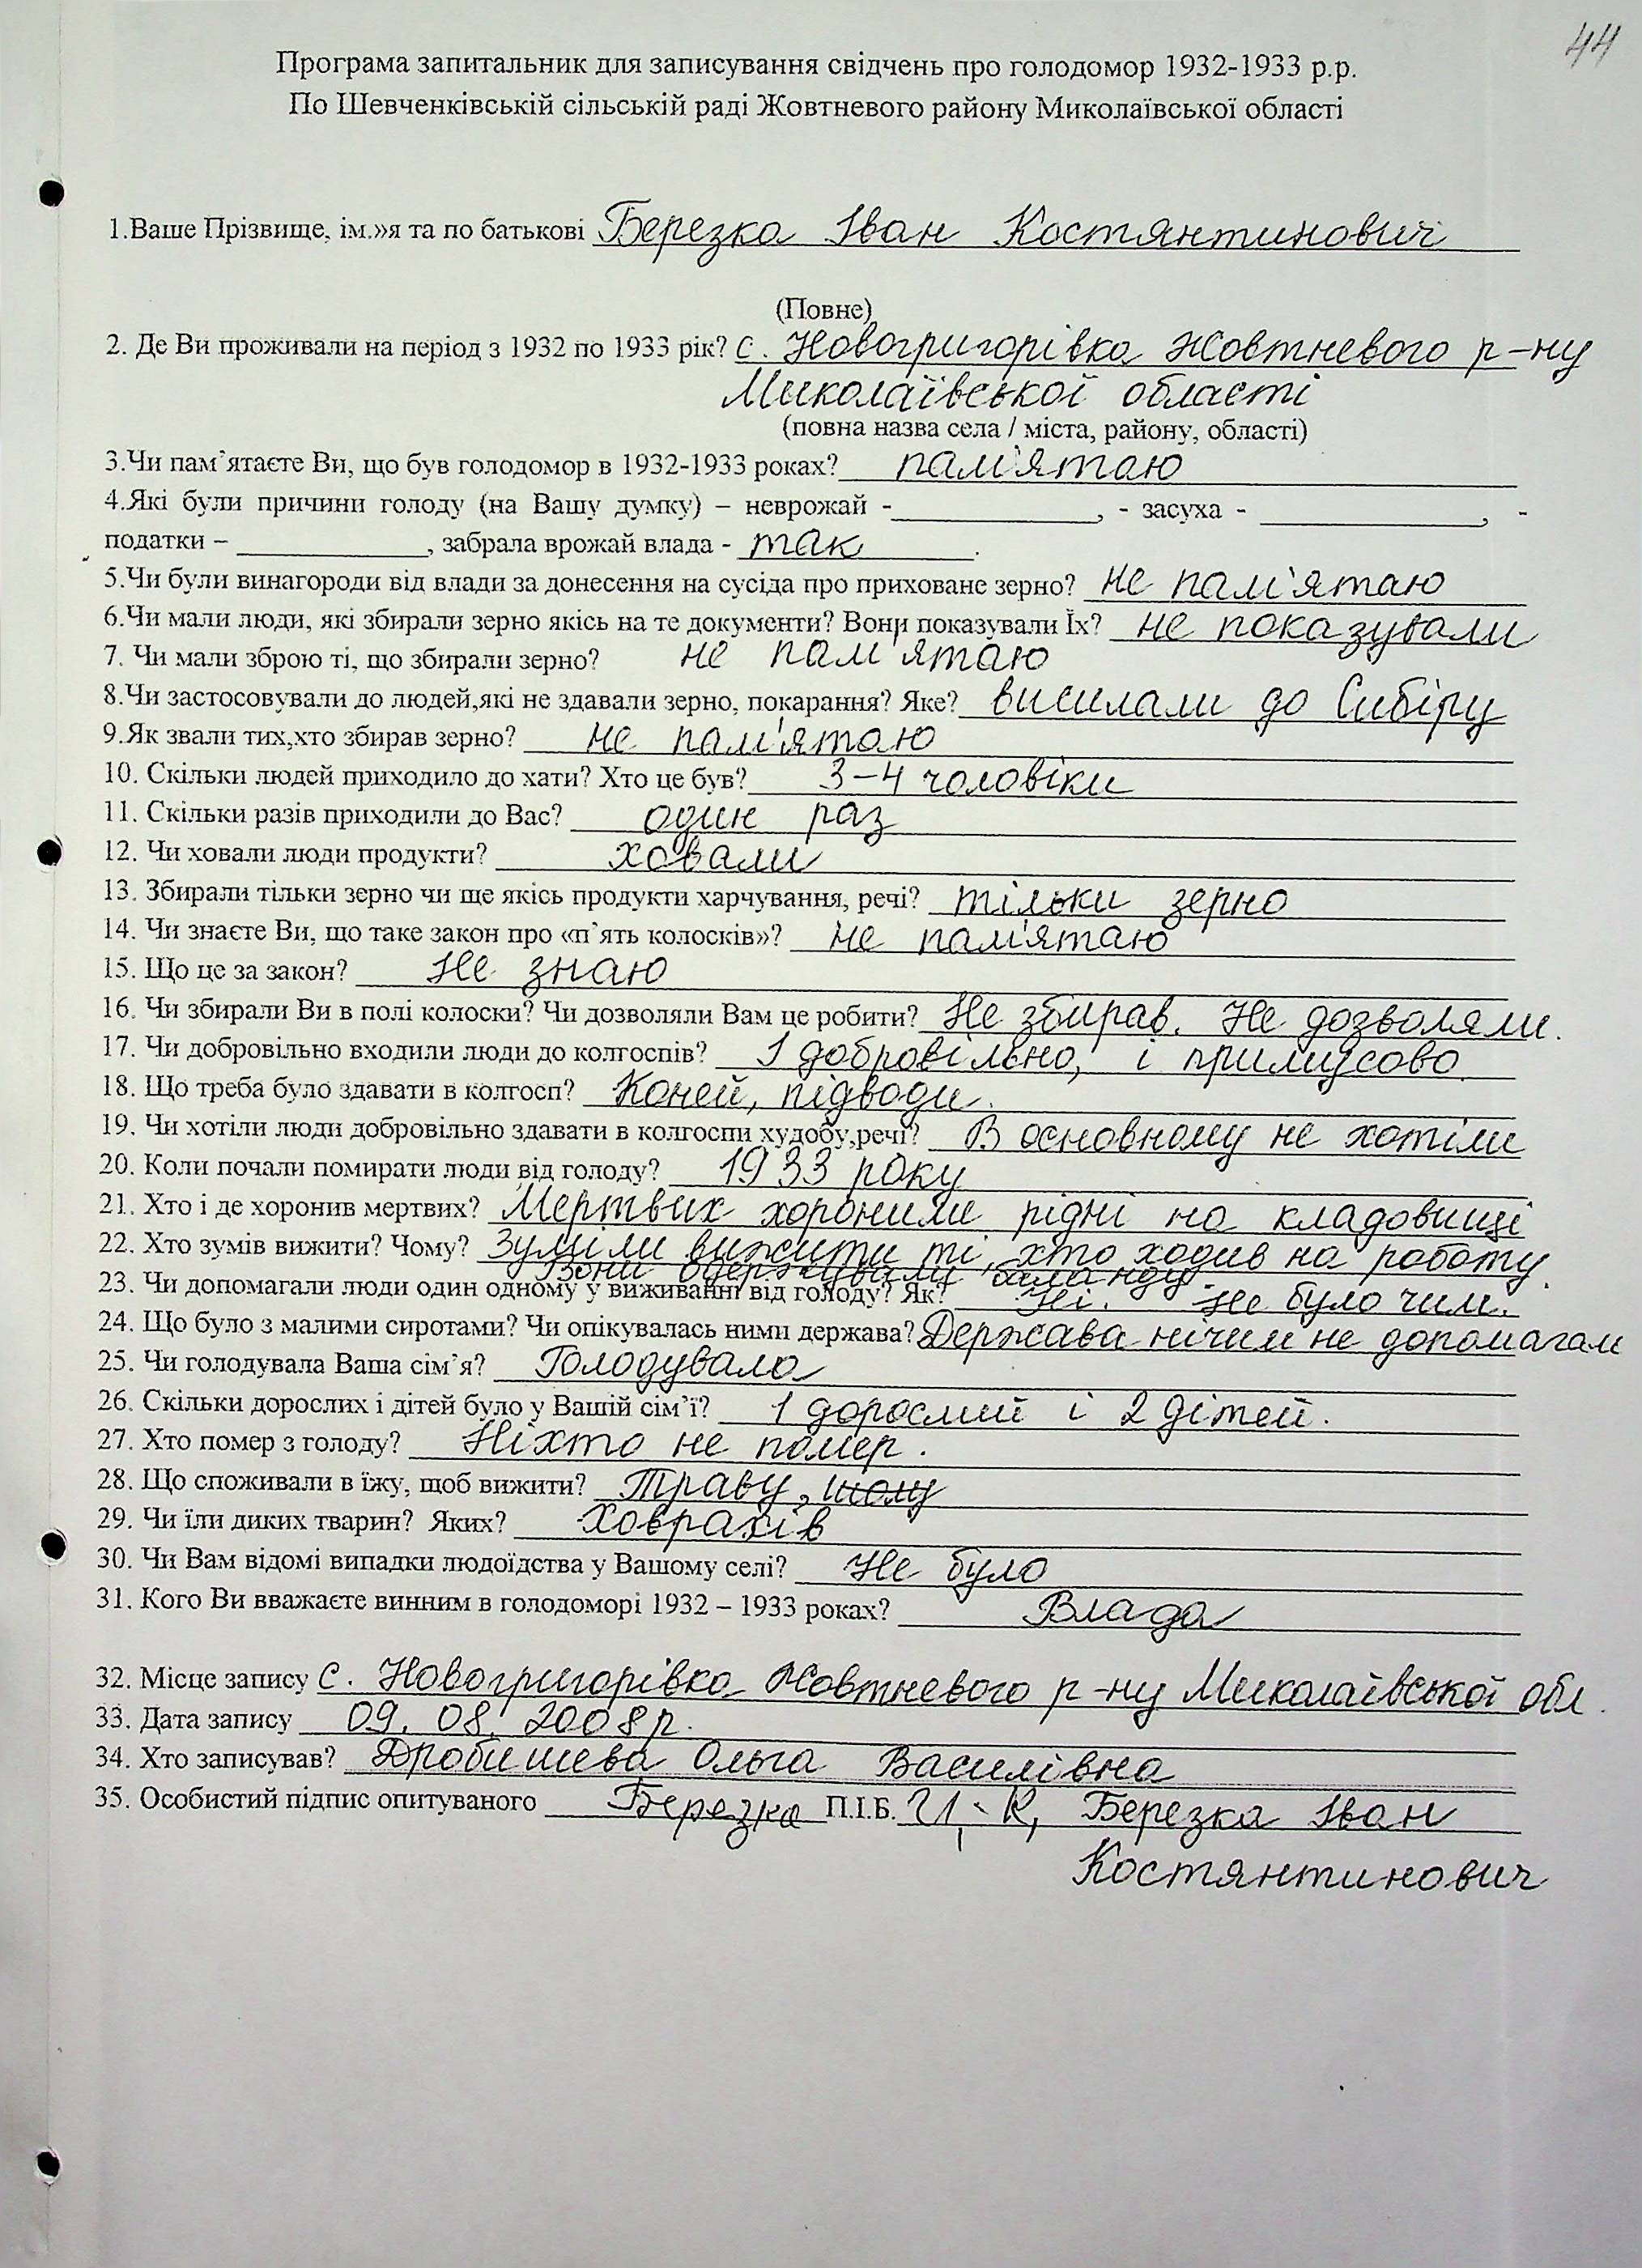 44
Програма запитальник для записування свідчень про голодомор 1932-1933 р.р.
По Шевченківській сільській раді Жовтневого району Миколаївської області
1.Ваше Прізвище, ім.»я та по батькові Березка Іван Костянтинович
(Повне)
2. Де Ви проживали на період з 1932 по 1933 рік? с. Новогригорівка Жовтневого р-ну
Миколаївської області
(повна назва села / міста, району, області)
3.Чи пам`ятаєте Ви, що був голодомор в 1932-1933 роках? пам'ятаю
4.Які були причини голоду (на Вашу думку) – неврожай -____________, - засуха - ____________, -
податки – ____________, забрала врожай влада - так.
5.Чи були винагороди від влади за донесення на сусіда про приховане зерно? не пам'ятаю
6.Чи мали люди, які збирали зерно якісь на те документи? Вони показували Їх? не показували
7. Чи мали зброю ті, що збирали зерно? не пам'ятаю
8.Чи застосовували до людей,які не здавали зерно, покарання? Яке? висилали до Сибіру
9.Як звали тих,хто збирав зерно? не пам'ятаю
10. Скільки людей приходило до хати? Хто це був? 3-4 чоловіки
11. Скільки разів приходили до Вас? один раз
12. Чи ховали люди продукти? ховали
13. Збирали тільки зерно чи ще якісь продукти харчування, речі? тільки зерно
14. Чи знаєте Ви, що таке закон про «п`ять колосків»? не пам'ятаю
15. Що це за закон? Не знаю
16. Чи збирали Ви в полі колоски? Чи дозволяли Вам це робити? Не збирав. Не дозволяли.
17. Чи добровільно входили люди до колгоспів? І добровільно, і примусово.
18. Що треба було здавати в колгосп? Коней, підводи.
19. Чи хотіли люди добровільно здавати в колгоспи худобу,речі? В основному не хотіли
20. Коли почали помирати люди від голоду? 1933 року
21. Хто і де хоронив мертвих? Мертвих хоронили рідні на кладовищі
22. Хто зумів вижити? Чому? Зуміли вижити ті, хто ходив на роботу.
Вони одержували баланду.
23. Чи допомагали люди один одному у виживанні від голоду? Як? Ні. Не було чим.
24. Що було з малими сиротами? Чи опікувалась ними держава? Держава нічим не допомагала
25. Чи голодувала Ваша сім’я? Голодувала
26. Скільки дорослих і дітей було у Вашій сім’ї? 1 дорослий і 2 дітей.
27. Хто помер з голоду? Ніхто не помер.
28. Що споживали в їжу, щоб вижити? Траву,
29. Чи їли диких тварин? Яких? Ховрахів
30. Чи Вам відомі випадки людоїдства у Вашому селі? Не було
31. Кого Ви вважаєте винним в голодоморі 1932 – 1933 роках? Влада
32. Місце запису с. Новогригорівка Жовтневого р-ну Миколаївської обл.
33. Дата запису 09. 08. 2008 р.
34. Хто записував? Дробишева Ольга Василівна
35. Особистий підпис опитуваного Березка П.І.Б. И. К, Березка Іван
Костянтинович